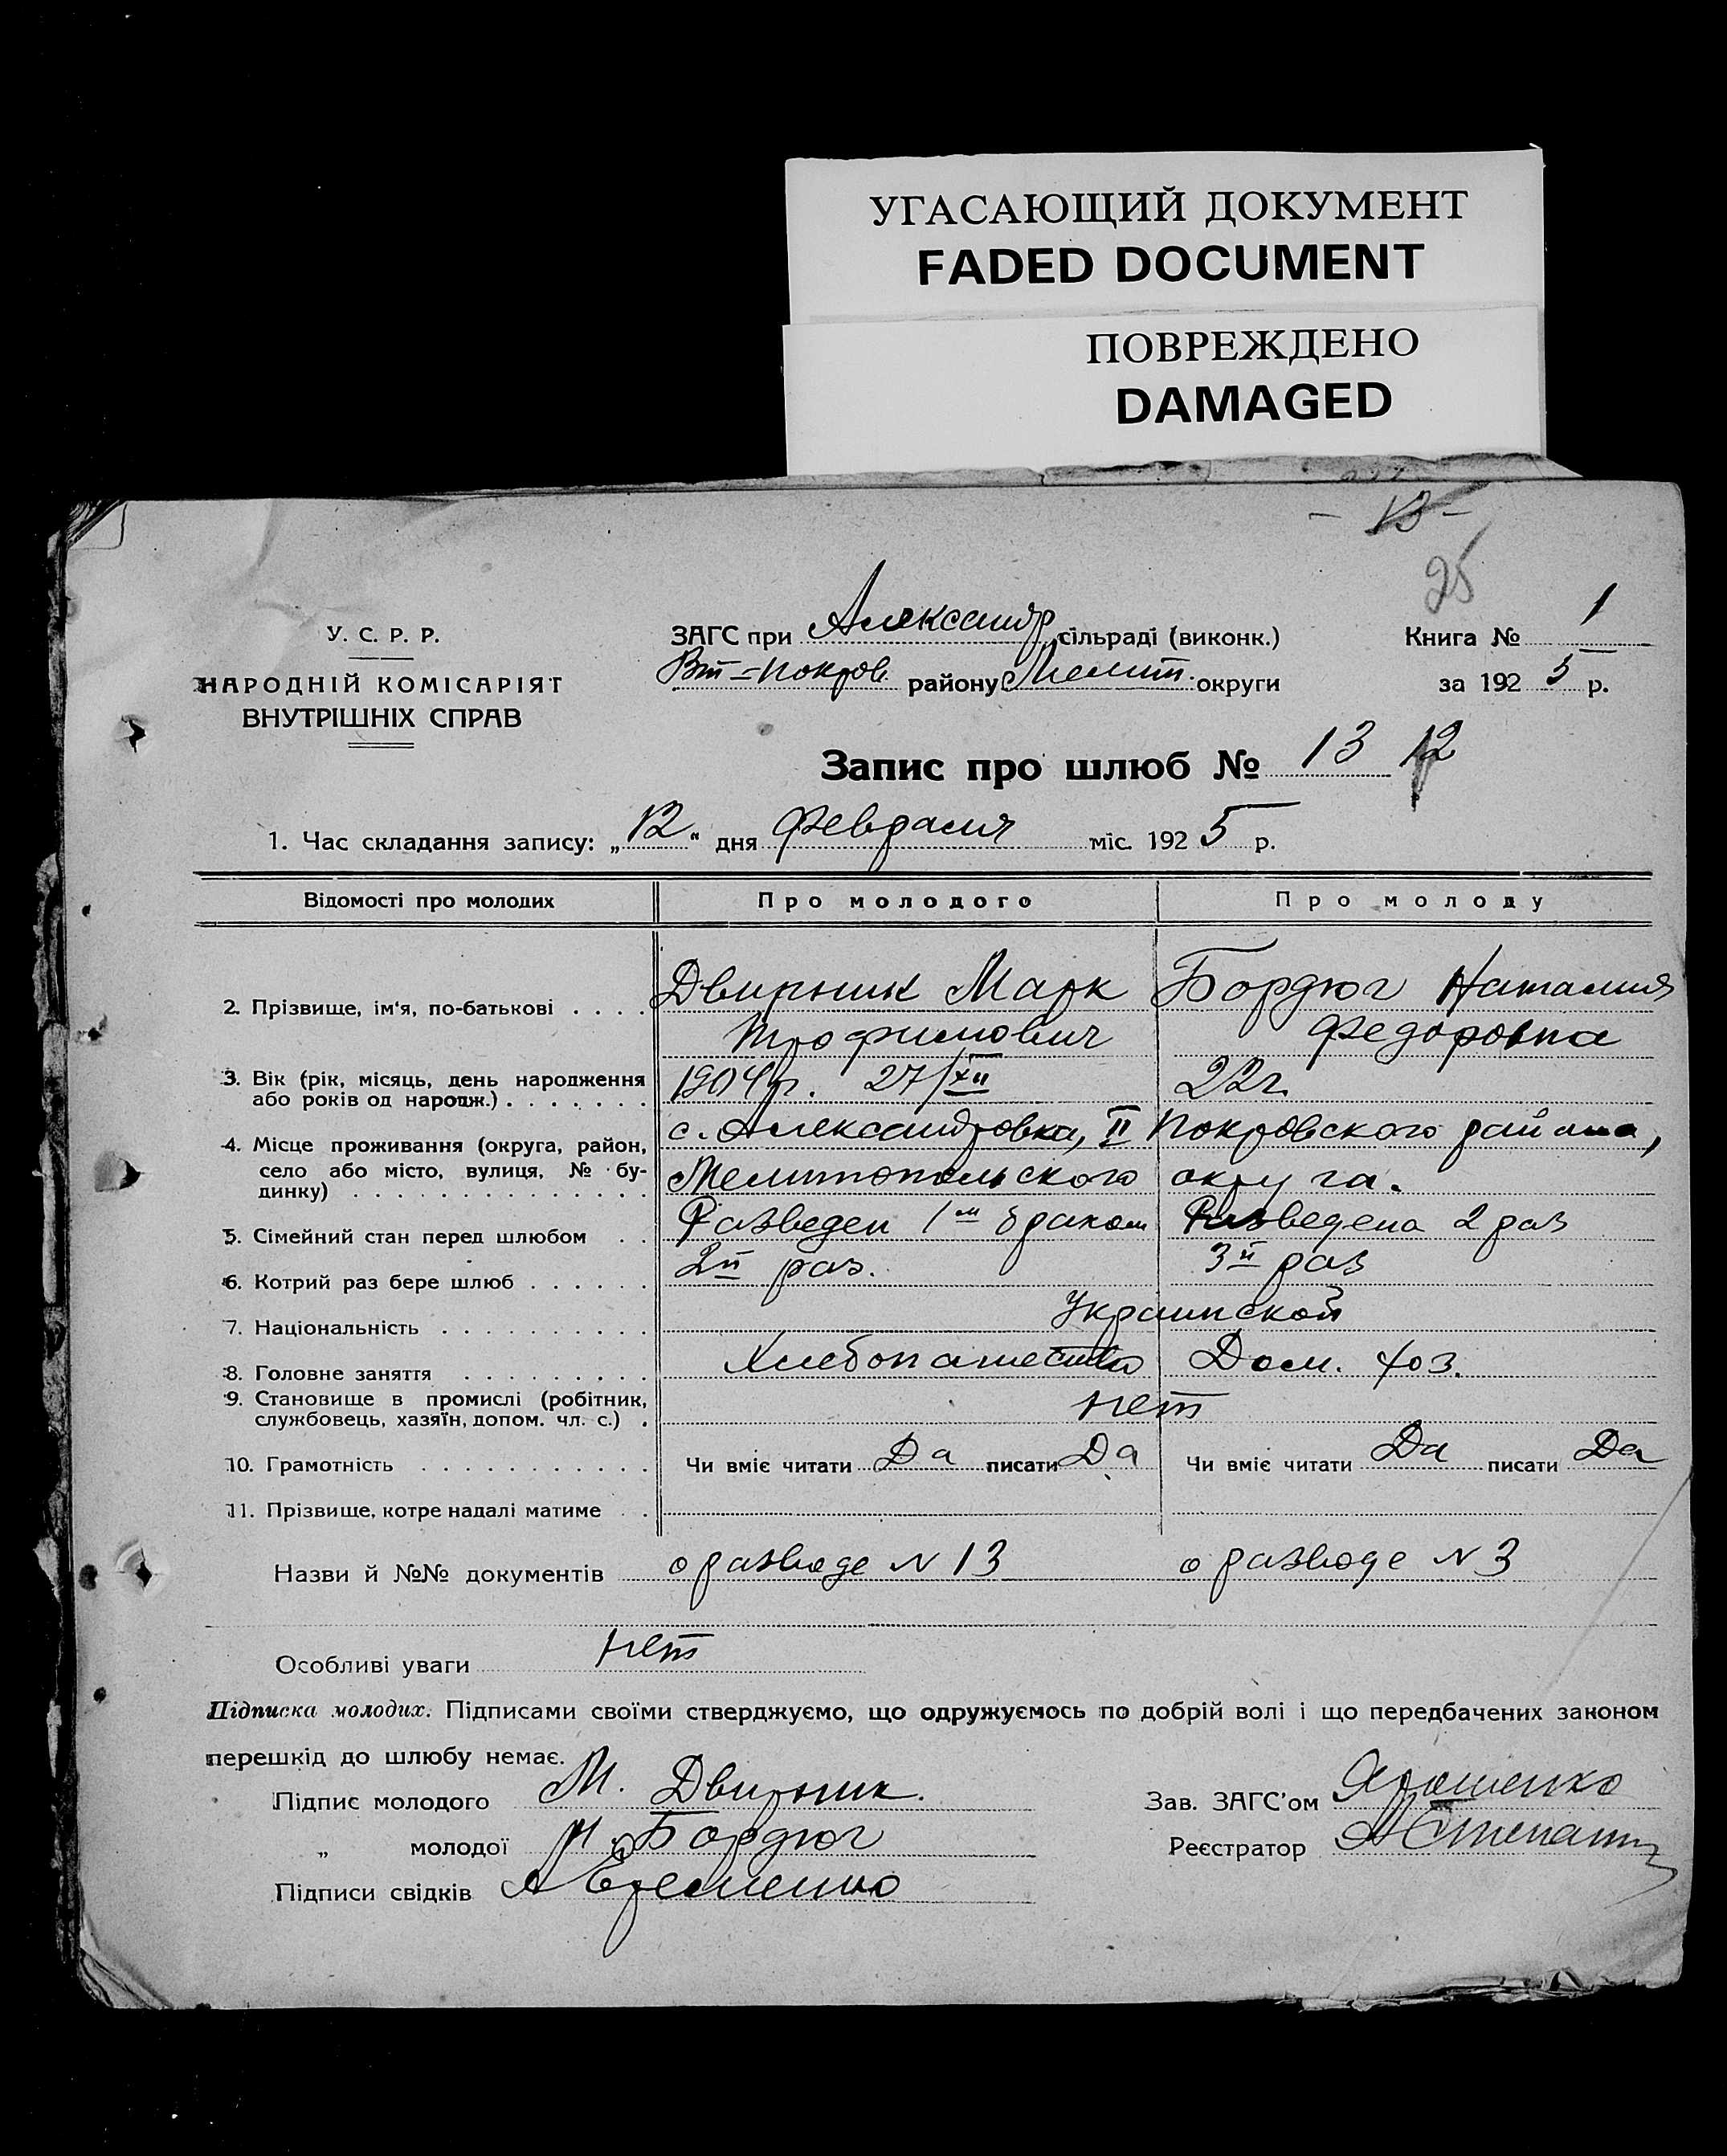 УГАСАЮЩИЙ ДОКУМЕНТ
FADED DOCUMENT
ПОВРЕЖДЕНО
DAMAGED
- 13 -
25
У. С. Р. Р.
НАРОДНІЙ КОМІСАРІЯТ
ВНУТРІШНІХ СПРАВ
ЗАГС при Александр. сільраді (виконк.)
Вт-Покров. району Мелит. округи
Книга № 1
за 1925 р.
Запис про шлюб № 13 12
1. Час складання запису: „12" дня Февраля міс. 1925 р.
Відомості про молодих Про молодого Про молоду
2. Прізвище, ім'я, по-батькові . . . . Двирник Марк Бордюг Наталия
Трофимович Федоровна
3. Вік (рік, місяць, день народження
або років од народж.) . . . . . . . 1904 р. 27/XII 22 г.
4. Місце проживання (округа, район,
село або місто, вулиця, № бу-
динку) . . . . . . . . . . . . . . .
с. Александровка, II Покровского района,
Мелитопольского округа.
5. Сімейний стан перед шлюбом . . Разведен 1м браком Разведена 2 раз
6. Котрий раз бере шлюб . . . . . . 2й раз. 3й раз
7. Національність . . . . . . . . . . Украинской
8. Головне заняття . . . . . . . . . Хлебопашество Дом. хоз.
9. Становище в промислі (робітник,
службовець, хазяїн, допом. чл. с.) . нет
10. Грамотність . . . . . . . . . . . Чи вміє читати Да писати Да Чи вміє читати Да писати Да
11. Прізвище, котре надалі матиме . .
Назви й №№ документів о разводе N 13 о разводе N 3
Особливі уваги нет
Підписка молодих. Підписами своїми стверджуємо, що одружуємось по добрій волі і що передбачених законом
перешкід до шлюбу немає.
Підпис молодого М. Двирник.
„ молодої Н. Бордюг
Підписи свідків А Еременко
Зав. ЗАГС'ом Ярошенко
Реєстратор